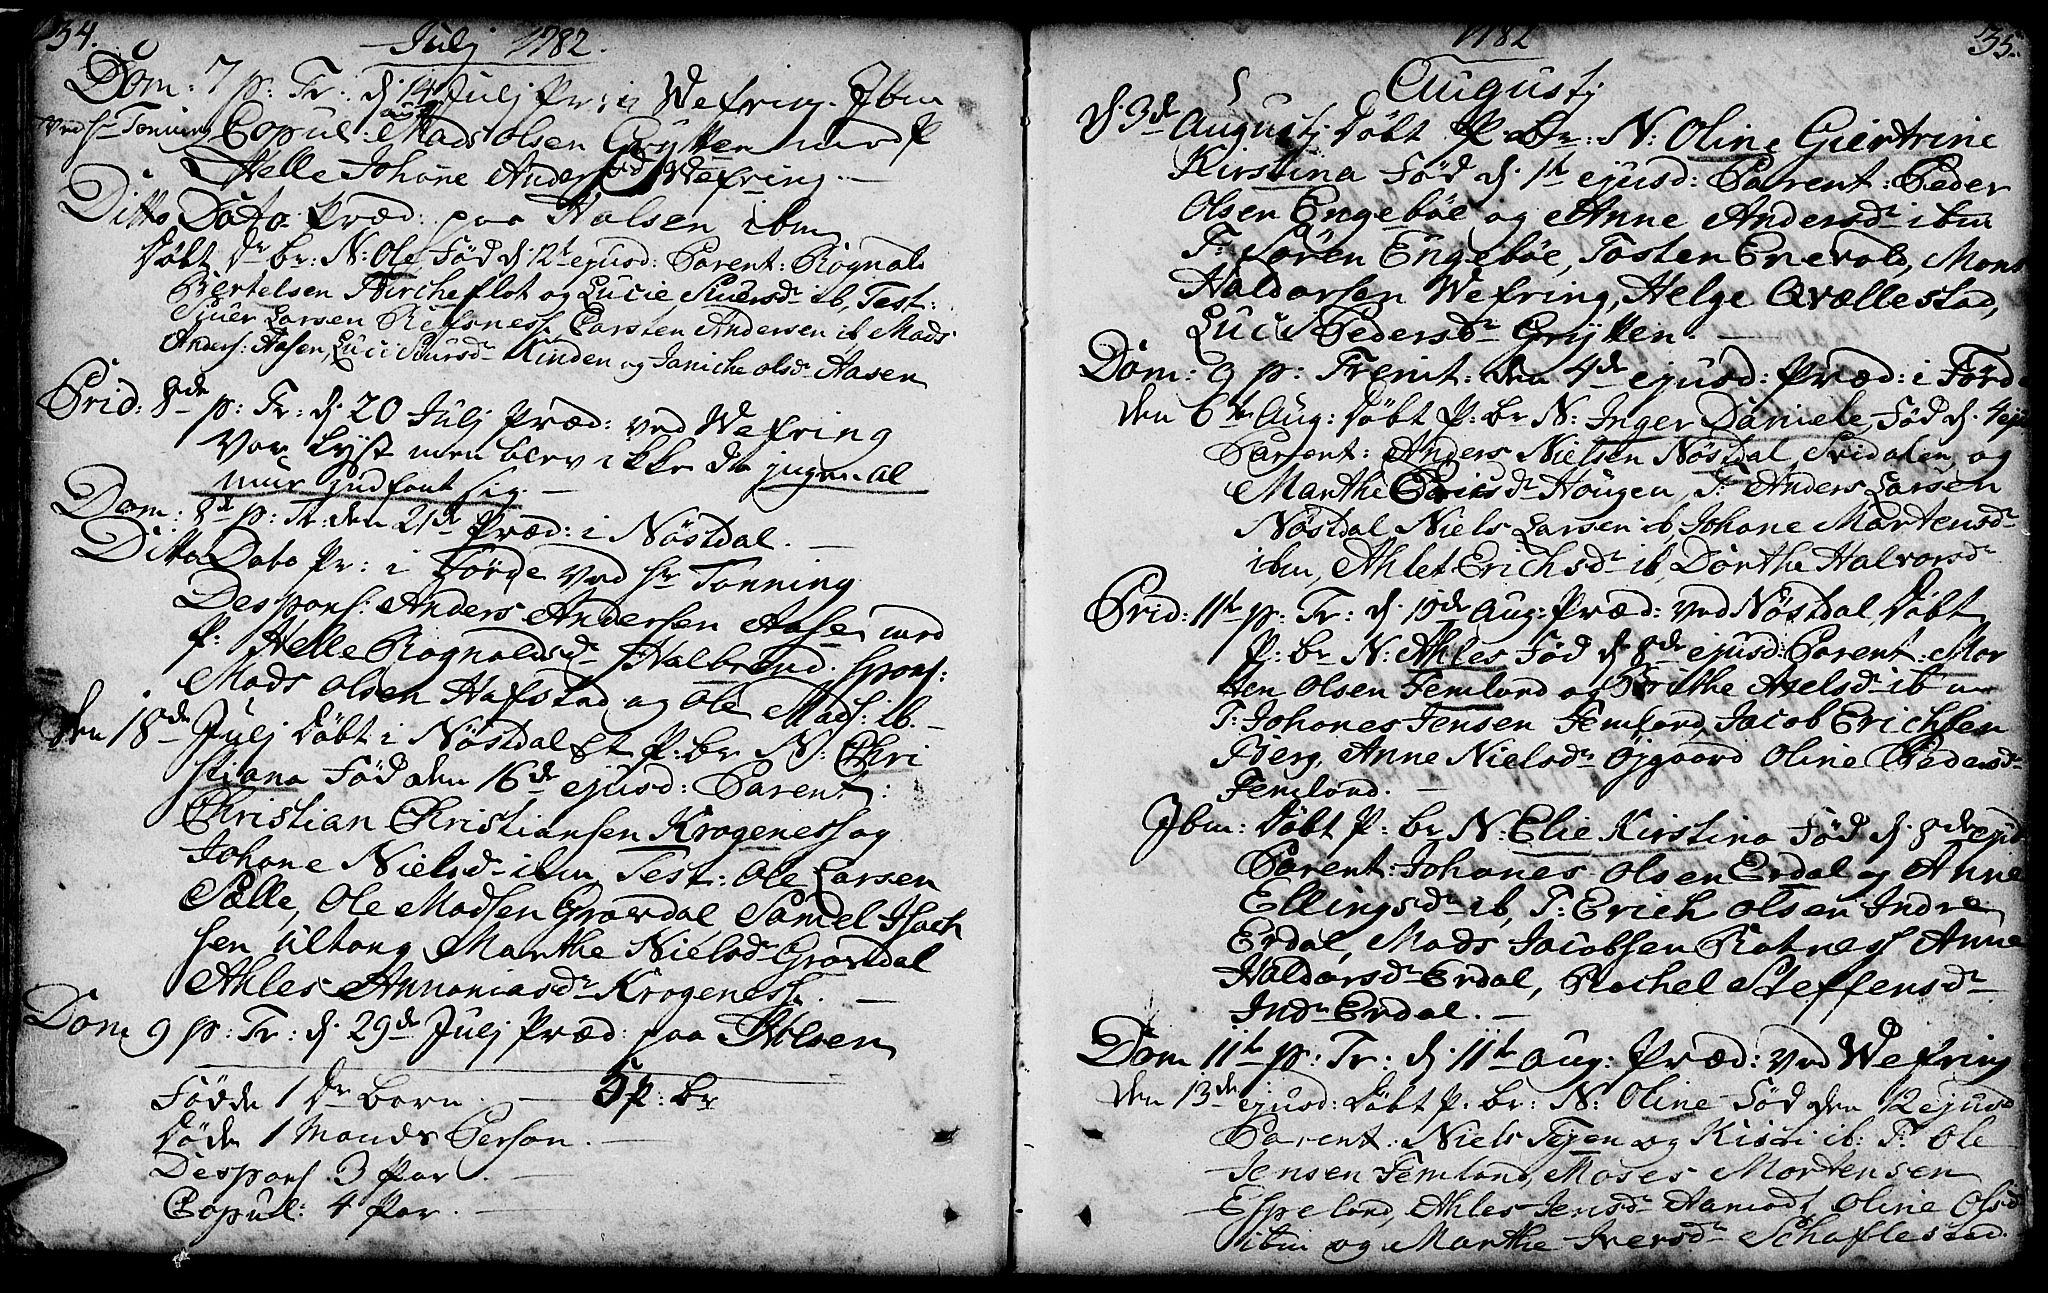 34.
Julj 1782.
Dom: 7 p: Tr: d. 14 Julj Pr: i Wefring. Jbm
ved Hr Tonning Copul: Mads Olsen Grytten med P
Helle Johane Andersd Wefring.
Ditto Dato Præd: paa Halsen ibm
Døbt Dr br: N: Ole Fød d. 12t ejusd: Parent: Rognald
Bertelsen Kircheflot og Lucie Siuersdr ib, Test:
Siuer Larsen Refsness, Carsten Andersen ib, Mads
Anders: Aasen, Luci Siursdr Kinden og Janiche Olsdr Aasen
Prid: 8de p: Tr: d. 20 Julj Præd: ved Wefring
Var lyst men blev ikke da jngen al
mue jndfant sig.
Dom: 8de p: Tr: den 21de Præd: i Nøstdal.
Ditto Dato Pr: i Førde ved Hr Tonning
Despons: Anders Andersen Aase med
P. Helle Rognaldsdr Halbrend. spons:
Mads Olsen Hafstad og Ole Mads: ib.
den 18de Julj Døbt i Nøstdal Et P: br N: Chri
stiana Fød den 16de ejusd: Parent:
Christian Christiansen Krogeness og
Johane Nielsdr ibm Test: Ole Larsen
Sælle, Ole Madsen Grovdal Samel Jsach
sen Ultang Marthe Nielsdr Grovdal
Ahles Annaniasdr Krogeness.
Dom 9 p: Tr: d. 29de Julj Præd: paa Halsen
Fødde 1 Dr barn. 5 p: br
Døde 1 Mands Person.
Despons 3 Par.
Copul: 4 Par.
1782
35.
Augustj
d. 3de Augustj Døbt P br: N: Oline Giertrine
Kirstina Fød d. 1t ejusd: Parent: Peder
Olsen Engebøe og Anne Andersdr ibm
T: Søren Engebøe, Tosten Erevold, Mons
Haldorsen Wefring, Helge Qvællestad,
Luci Pedersdr Grytten.
Dom: 9 p: Trenit: den 4de ejusd: Præd: i Førde
den 6te Aug: Døbt P: br N: Inger Daniele, Fød d. 4 eju
Parent: Anders Nielsen Nøstdal Svidalen, og
Marthe Pedersdr Hougen, T: Anders Larsen
Nøstdal Niels Larsen ib, Johane Martensdr
ibm, Ahlet Erichsdr ib, Dorthe Halvorsdr
Prid: 11te p: Tr: d. 10de Aug: Præd: ved Nøstdal, Døbt
P: br N: Ahles Fød d 8de ejusd: Parent: Mor
ten Olsen Femlond og Brithe Axelsdr ibm
T: Johanes Jensen Femlond, Jacob Erichsen
Berg, Anne Nielsdr Øjgaard Oline Pedersdr
Femlond.
Jbm: Døbt P: br N: Elie Kirstina Fød d. 8de ejusd
Parent: Johanes Olsen Erdal og Anne
Ellingsdr ib, T: Erich Olsen Indre
Erdal, Mads Jacobsen Ratness Anne
Haldorsdr Erdal, Rachel Steffensdr
Indr Erdal.
Dom 11te p: Tr: d. 11te Aug: Præd: ved Wefring
den 13de ejusd: Døbt P: br: N: Oline Fød den 12 ejusd
Parent: Niels Tejen og Kisti ib: T: Ole
Jensen Femlond, Moses Mortensen
Espelond, Ahles Jensdr Aamodt, Oline Olsd
ibm og Marthe Iversdr Schaflestad.